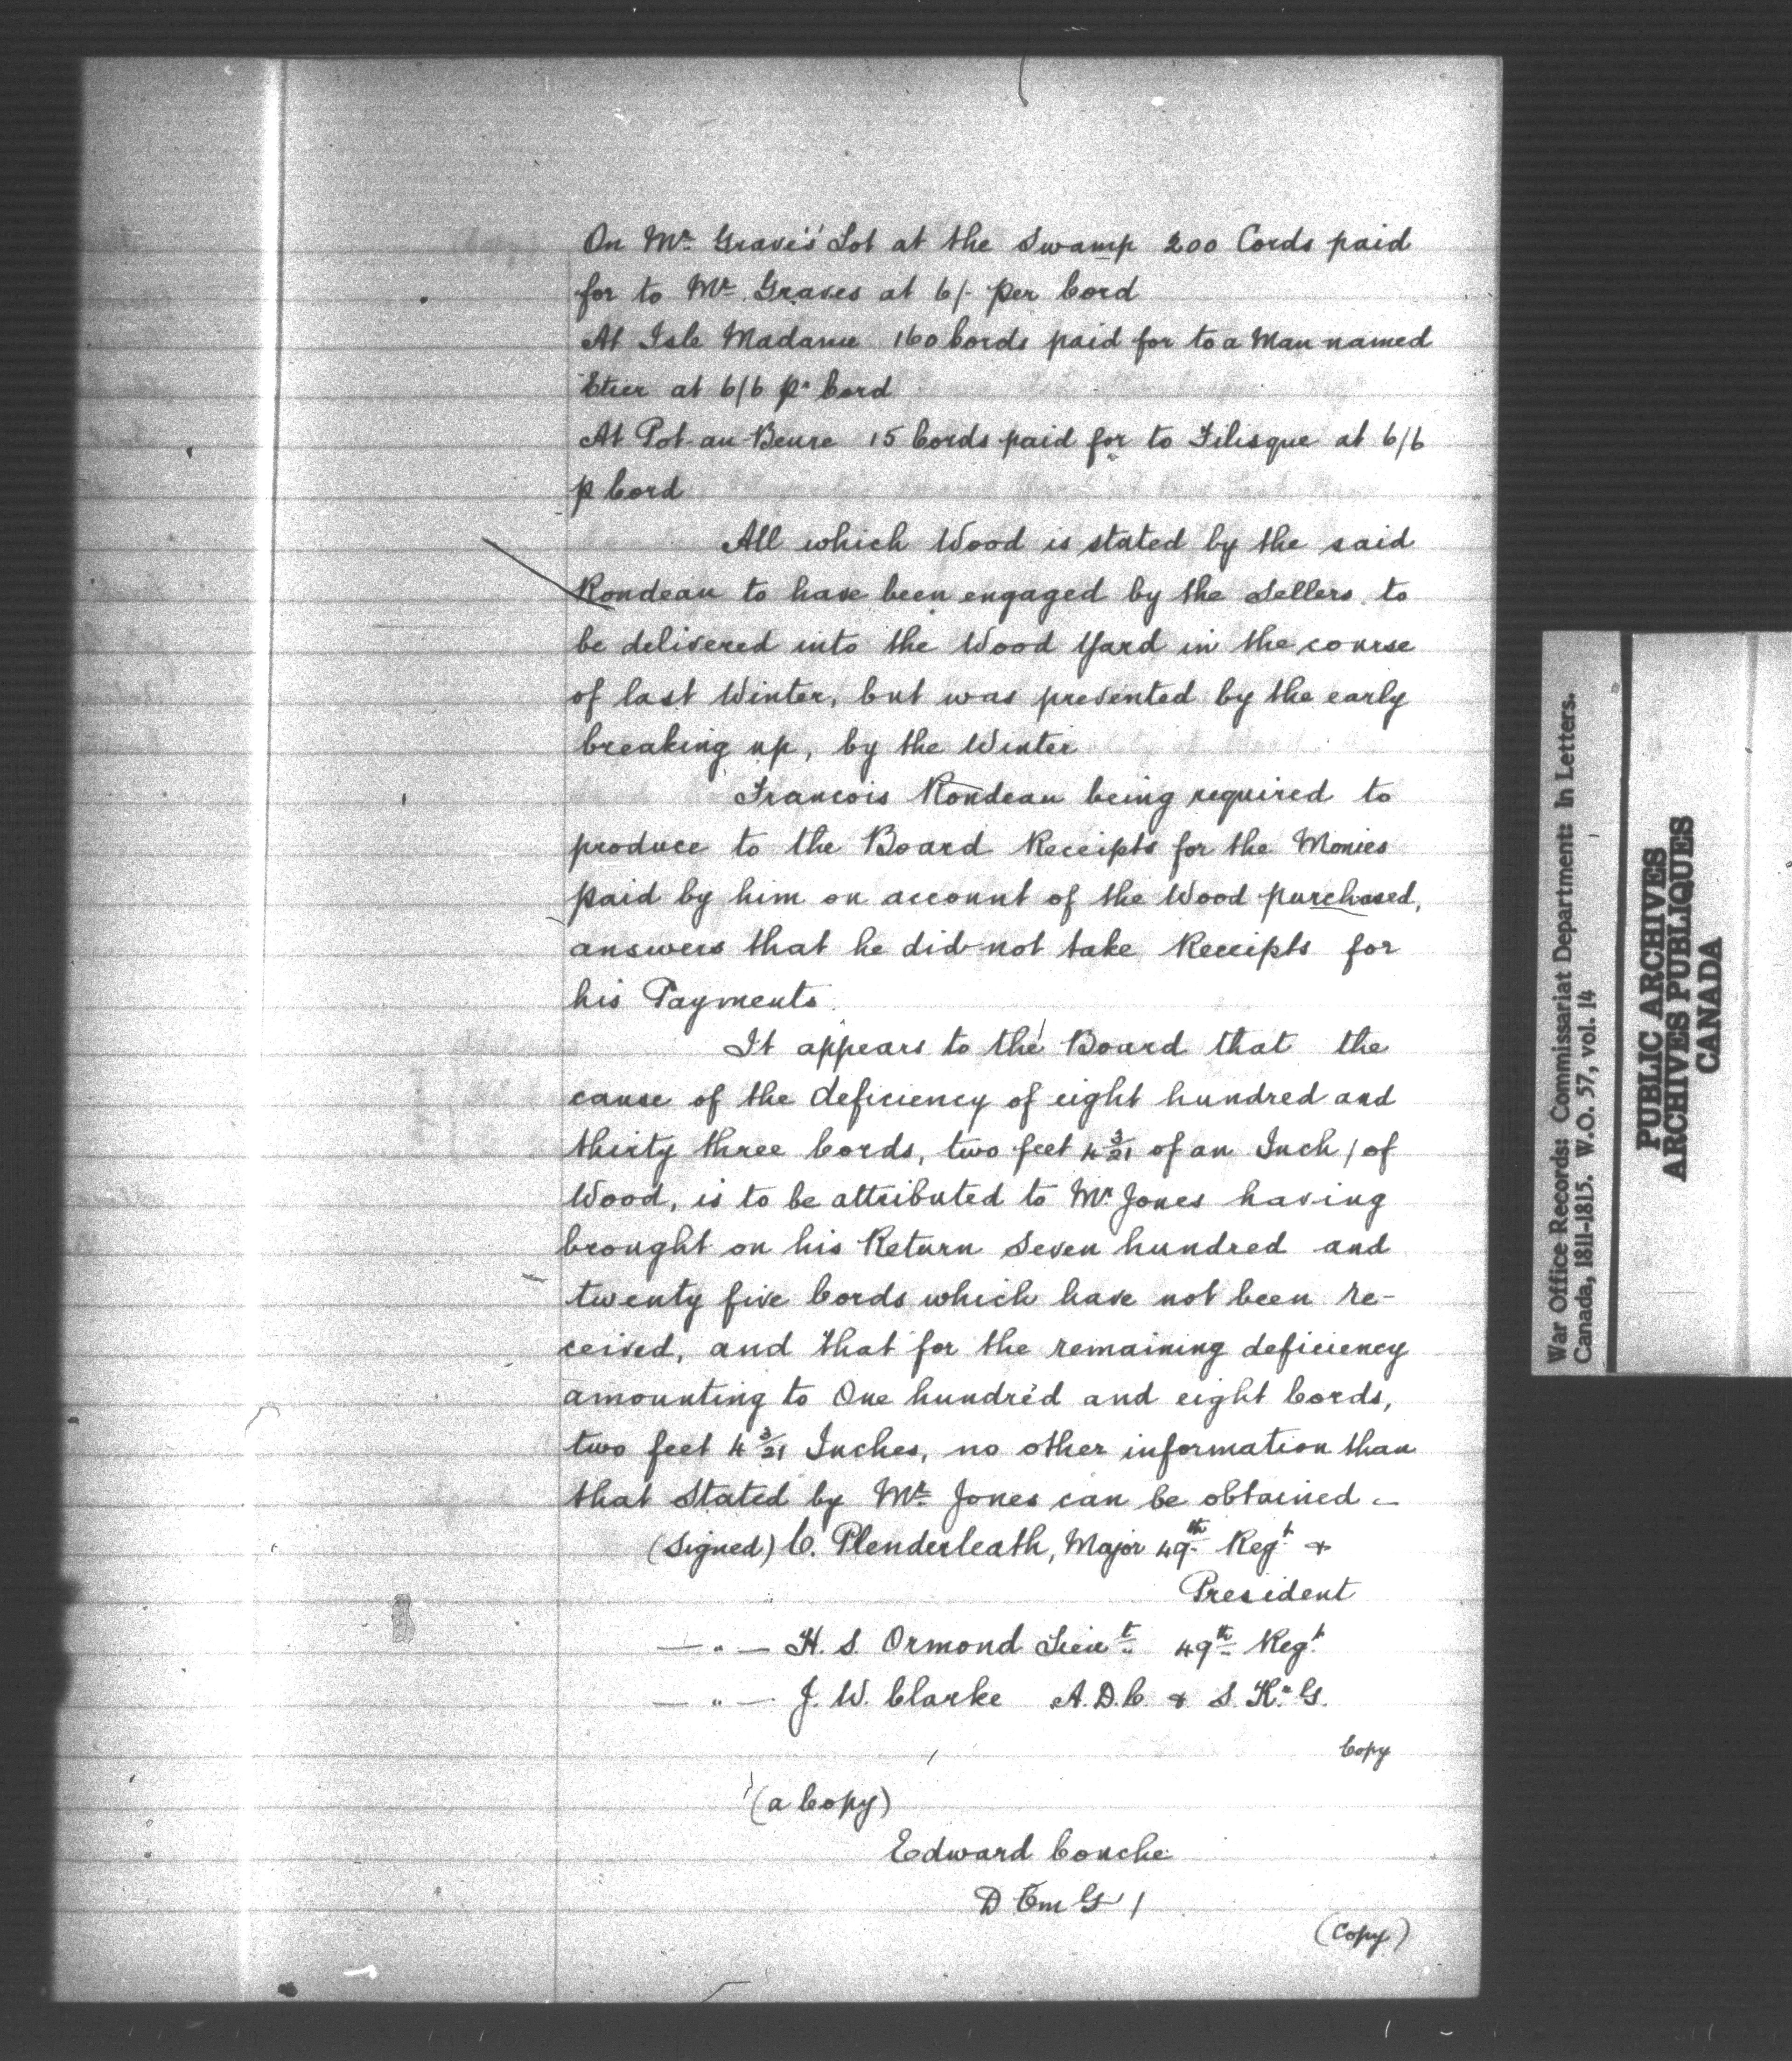 On Mr. Graves' Lot at the Swamp 200 Cords paid
for to Mr. Graves at 6/- per Cord
At Isle Madame 160 Cords paid for to a Man named
Etier at 6/6 pr Cord
At Pot-au-Beure 15 Cords paid for to Filisque at 6/6
p Cord
All which Wood is stated by the said
Rondeau to have been engaged by the Sellers to
be delivered into the Wood Yard in the course
of last Winter, but was prevented by the early
breaking up, by the Winter
Francois Rondeau being required to
produce to the Board Receipts for the Monies
paid by him on account of the Wood purchased,
answers that he did not take Receipts for
his Payments.
It appears to the Board that the
cause of the deficiency of eight hundred and
thirty three Cords, two feet 4 3/21 of an Inch / of
Wood, is to be attributed to Mr. Jones having
brought on his Return Seven hundred and
twenty five Cords which have not been re-
ceived, and that for the remaining deficiency
amounting to One hundred and eight Cords,
two feet 4 3/21 Inches, no other information than
that Stated by Mr. Jones can be obtained -
(Signed) C. Plenderleath, Major 49th Regt. &
President
— " — H. S. Ormond Lieut. 49th Regt.
— " — J. W. Clarke A.D.C. & S. K. G.
Copy
(a Copy)
Edward Couche
D Com G /
(Copy)
War Office Records: Commissariat Department: In Letters.
Canada, 1811-1815. W.O. 57, vol. 14
PUBLIC ARCHIVES
ARCHIVES PUBLIQUES
CANADA